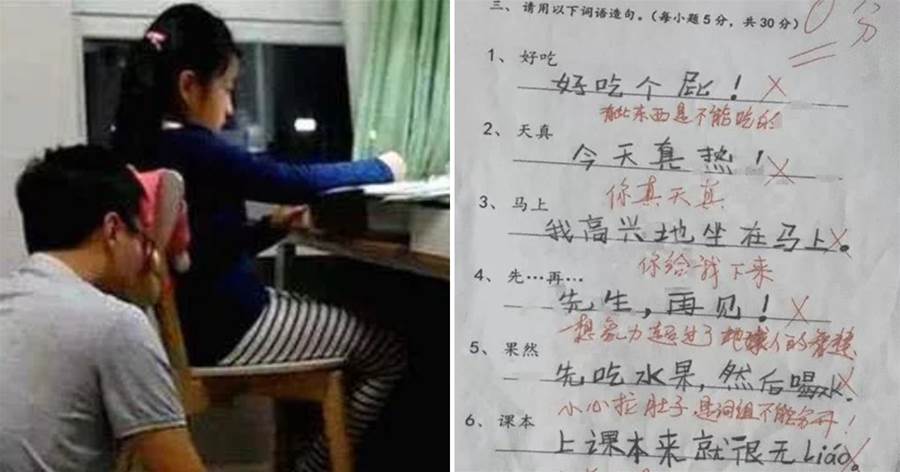 三、请用以下词语造句。(每小题5分,共30分)
0分
1、好吃
好吃个屁!
有些东西是不能吃的
2、天真
今天真热!
你真天真
3、马上
我高兴地坐在马上。
你给我下来
4、先…再…
先生,再见!
想象力超过了地球人的
5、果然
先吃水果,然后喝水。
小心拉肚子,是词组不能分开!
6、课本
上课本来就很无liáo。